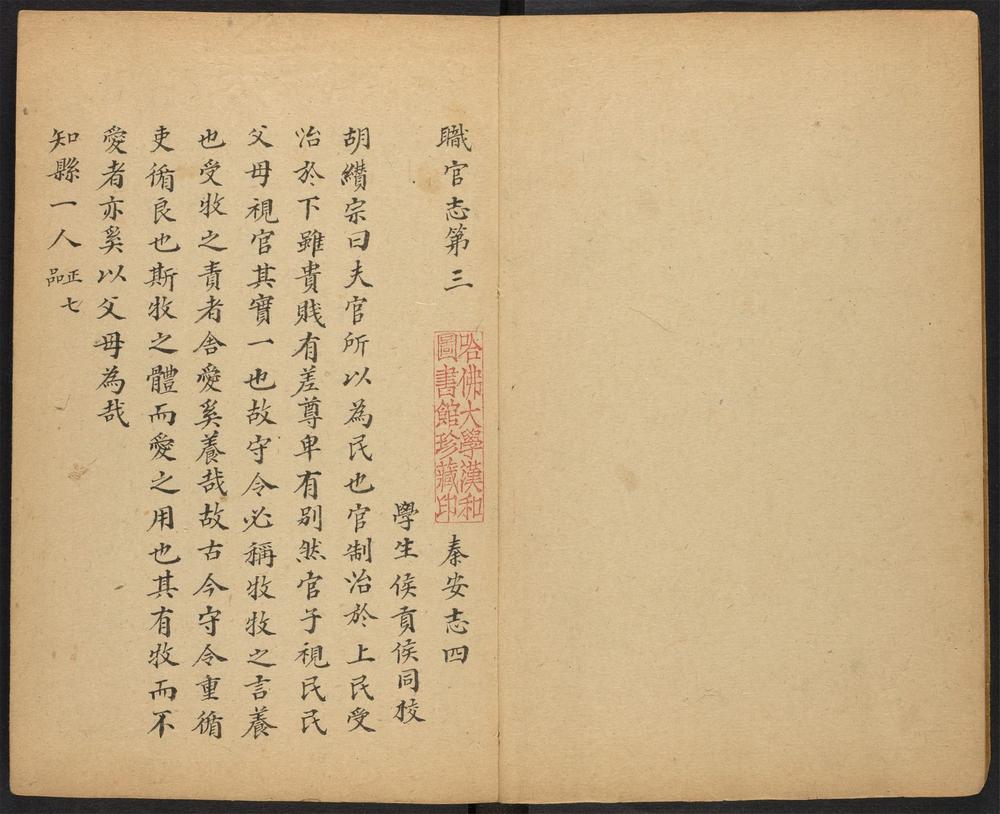 職官志第三 秦安志四
哈佛大學漢和
圖書館珍藏印
學生侯貢侯同挍
胡纘宗曰夫官所以為民也官制治於上民受
治於下雖貴賎有差尊卑有别然官子視民民
父母視官其實一也故守令必稱牧牧之言養
也受牧之責者舍愛奚養哉故古今守令重循
吏循良也斯牧之體而愛之用也其有牧而不
愛者亦奚以父母為哉
知縣一人正七
品